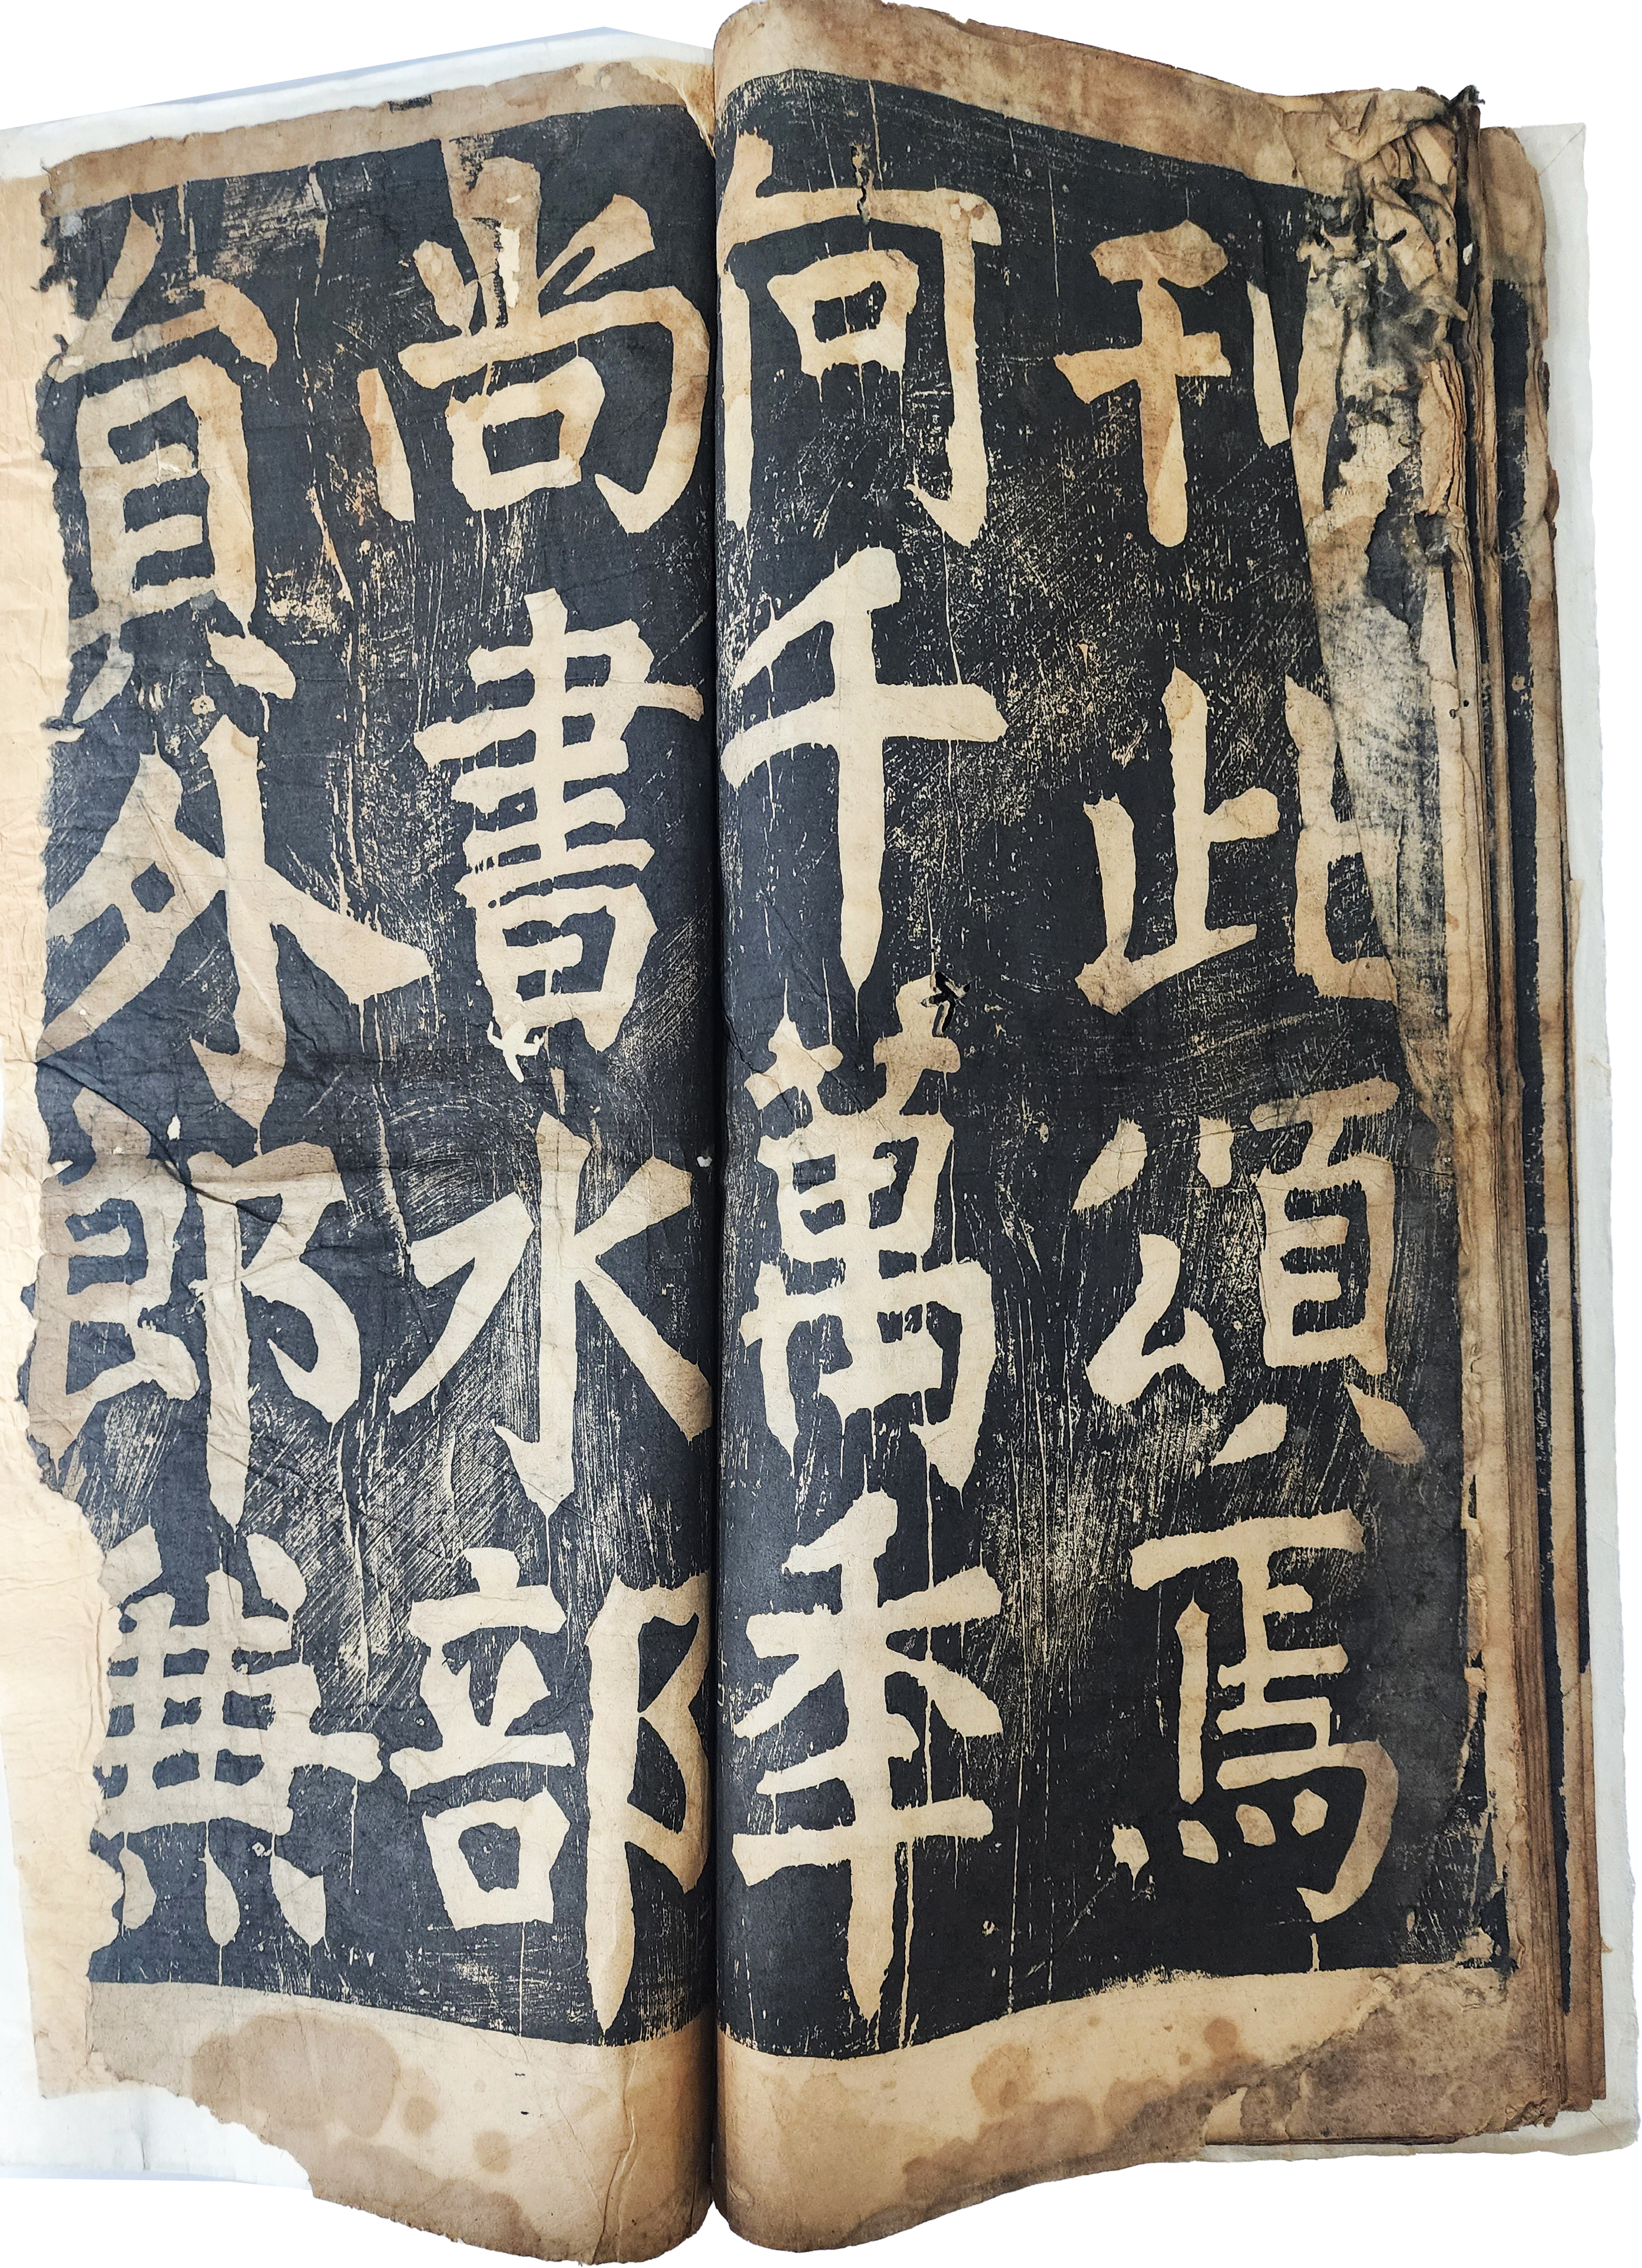 刊此頌焉
何千萬秊
尚書水部
貟外郎兼